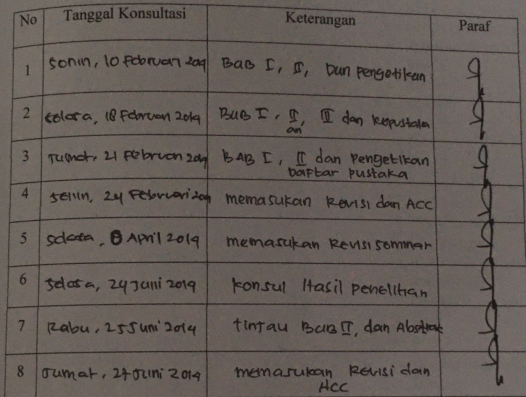 No Tanggal Konsultasi Keterangan Paraf
1 Senin, 10 Februari 2019 BaB I, II, Dan Pengetikan
2 Selasa, 18 Februari 2019 BaB I, II, III dan Kepustaka
an
3 Jumat, 21 Februari 2019 BAB I, II dan Pengetikan
Daftar pustaka
4 Senin, 24 Februari 2019 memasukan Revisi dan ACC
5 Selasa, 8 April 2019 memasukan Revisi seminar
6 Selasa, 24 Juni 2019 Konsul Hasil Penelitian
7 Rabu, 25 Juni 2019 tinjau BaB II, dan Abstrak
8 Jumat, 27 Juni 2019 memasukan Revisi dan
ACC